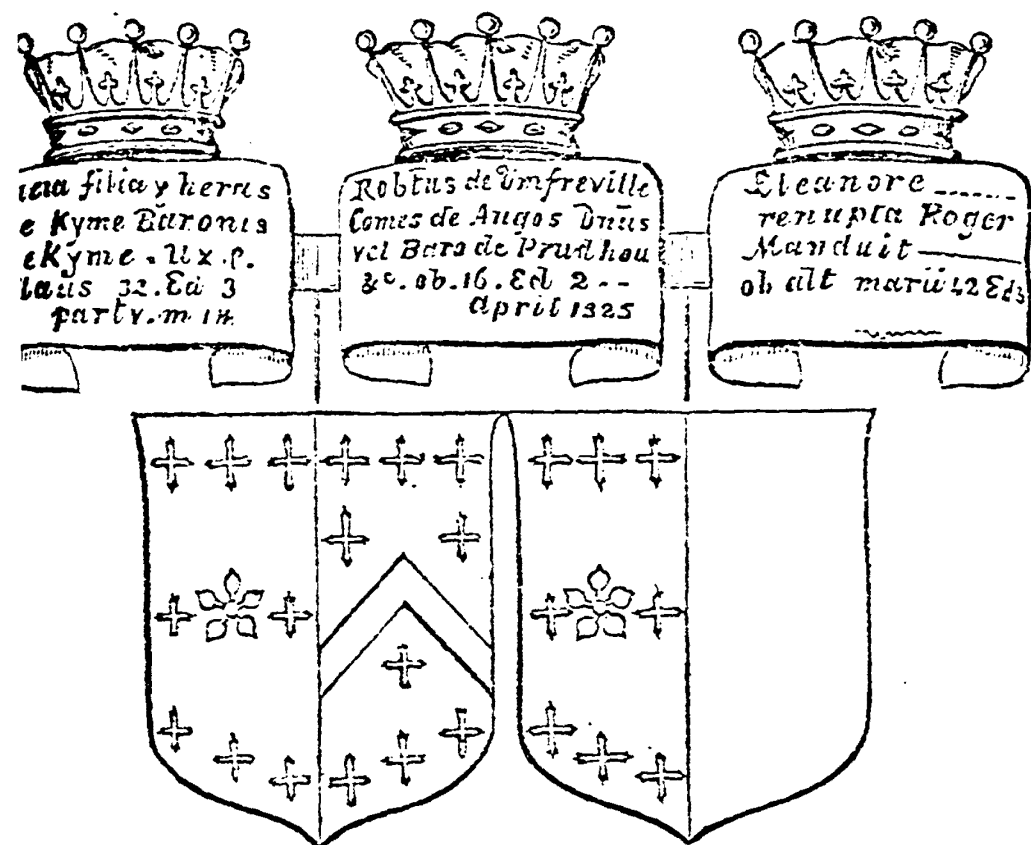 filia y heras
e Kyme Baronis
e Kyme. Ux. P.
laus 32. Ed 3
party. m
Robtus de Umfreville
Comes de Angos Dnūs
vel Baro de Prudhou
&c. ob. 16. Ed 2 --
April 1325
Eleanore ......
renupta Roger
Manduit
ob alt marii 42 Ed3